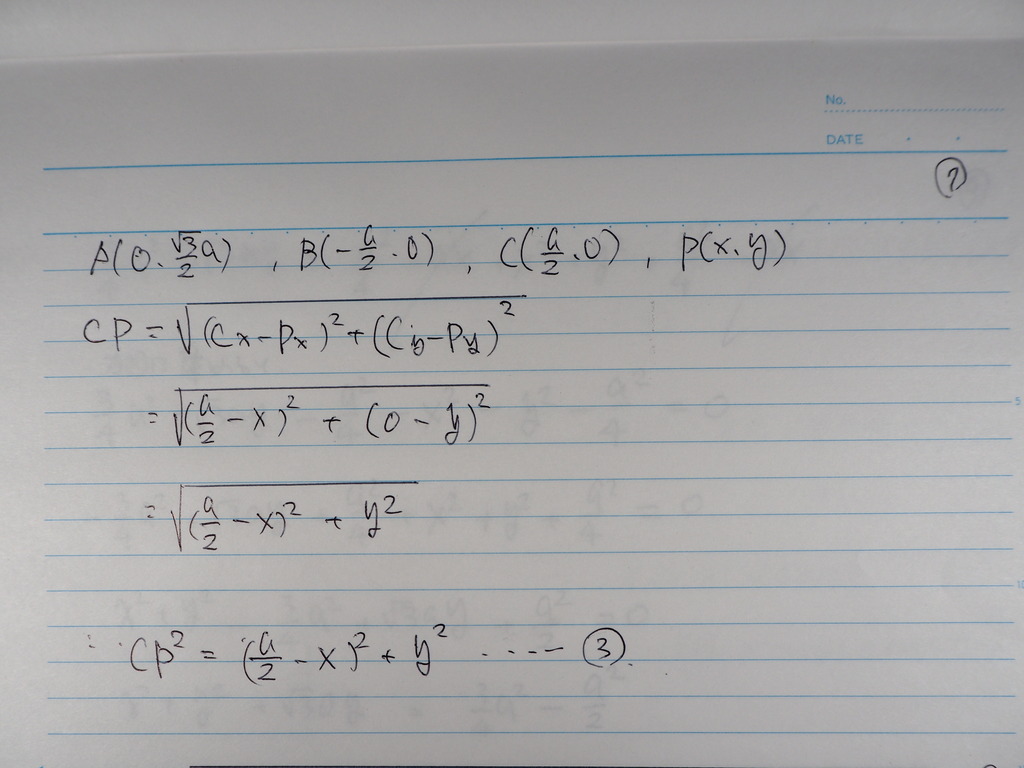 No.
DATE
?
A(0.√3/2 a) , B(-a/2.0) , C(a/2.0) , P(x.y)
CP = √((Cx-Px)²+(Cy-Py)²)
= √((a/2-x)² + (0-y)²)
= √((a/2-x)² + y²)
∴ CP² = (a/2-x)² + y² ····- ③.